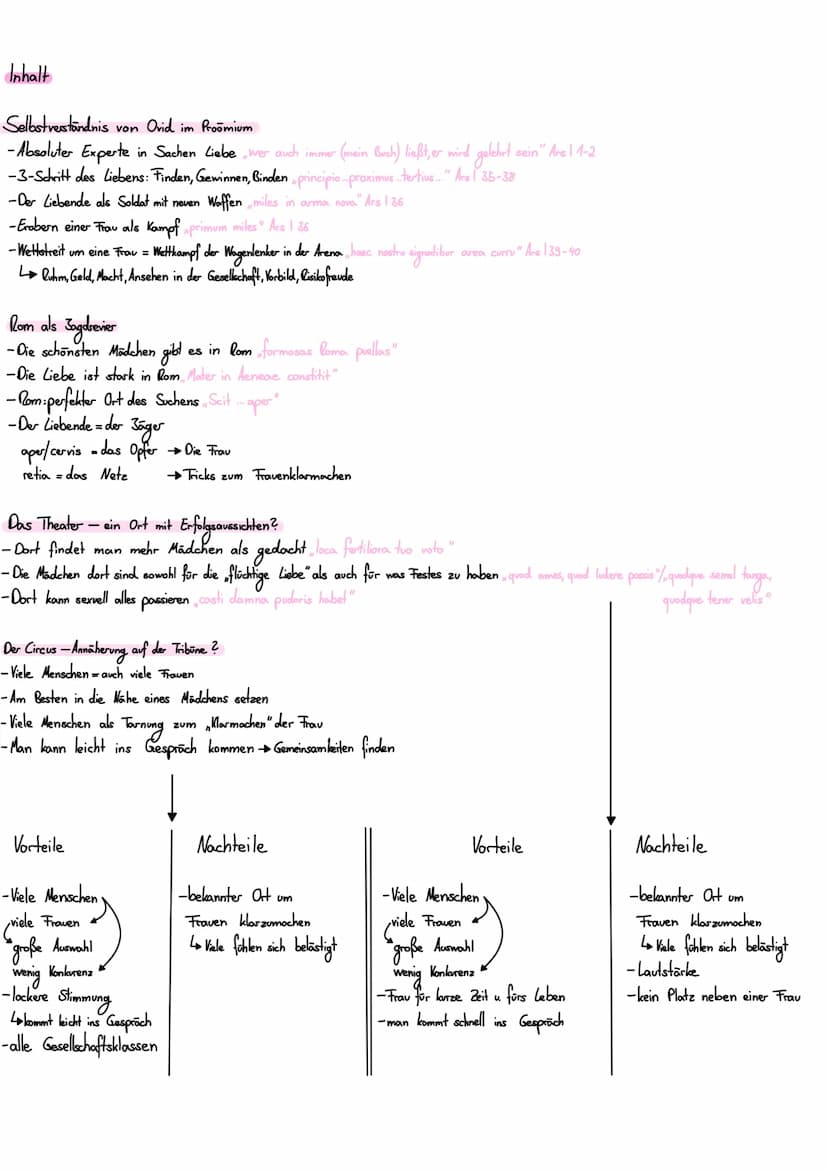 Inhalt
Selbstverständnis von Ovid im Proömium
-Absoluter Experte in Sachen Liebe „wer auch immer (mein Buch) ließt, er wird gelehrt sein" Ars I 1-2
-3-Schritt des Liebens: Finden, Gewinnen, Binden „principio...proximus...tertius..." Ars I 35-38
-Der Liebende als Soldat mit neuen Waffen „miles in arma nova" Ars I 36
-Erobern einer Frau als Kampf „primum miles" Ars I 36
-Wettstreit um eine Frau = Wettkampf der Wagenlenker in der Arena „haec nostro signabitur area curru" Ars I 39-40
↳ Ruhm, Geld, Macht, Ansehen in der Gesellschaft, Vorbild, Risikofreude
Rom als Jagdrevier
-Die schönsten Mädchen gibt es in Rom „formosas Roma puellas"
-Die Liebe ist stark in Rom „Mater in Aeneae constitit"
-Rom: perfekter Ort des Suchens „Scit ... aper"
-Der Liebende = der Jäger
aper/cervis = das Opfer → Die Frau
retia = das Netz → Tricks zum Frauenklarmachen
Das Theater – ein Ort mit Erfolgsaussichten?
- Dort findet man mehr Mädchen als gedacht „loca fertiliora tuo voto"
- Die Mädchen dort sind sowohl für die „flüchtige Liebe" als auch für was Festes zu haben „quod ames, quod ludere possis"/„quodque semel tanga,
quodque tener velis"
-Dort kann sexuell alles passieren „casti damna pudoris habet"
Der Circus – Annäherung auf der Tribüne?
- Viele Menschen = auch viele Frauen
-Am Besten in die Nähe eines Mädchens setzen
-Viele Menschen als Tarnung zum „Klarmachen" der Frau
-Man kann leicht ins Gespräch kommen → Gemeinsamkeiten finden
Vorteile
-Viele Menschen
viele Frauen
große Auswahl
wenig Konkurenz
-lockere Stimmung
↳kommt leicht ins Gespräch
-alle Gesellschaftsklassen
Nachteile
-bekannter Ort um
Frauen klarzumachen
↳ Viele fühlen sich belästigt
Vorteile
-Viele Menschen
viele Frauen
große Auswahl
wenig Konkurenz
-Frau für kurze Zeit u. fürs Leben
-man kommt schnell ins Gespräch
Nachteile
-bekannter Ort um
Frauen klarzumachen
↳ Viele fühlen sich belästigt
-Lautstärke
-kein Platz neben einer Frau